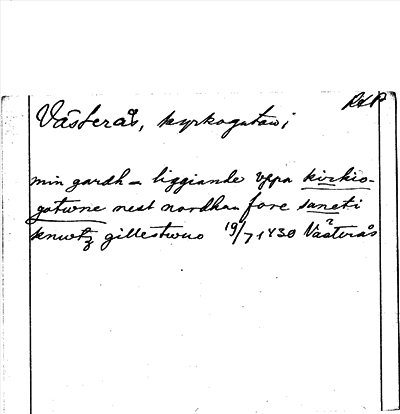 RAP
Västerås, kyrkogatan i
min gardh = liggiande vppa kirkio-
gatwne nest nordhan fore sancti
knwtz gillestwuo 19/7 1430 Västerås